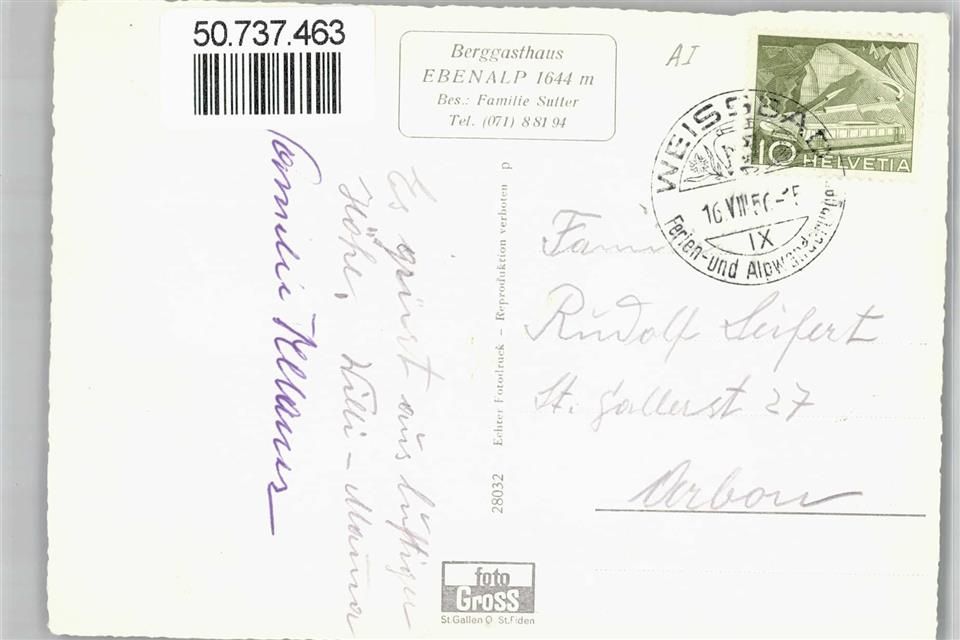 50.737.463
Berggasthaus
EBENALP 1644 m
Bes.: Familie Sutter
Tel. (071) 8 81 94
AI
10 HELVETIA
WEISSBAD
16.VIII.5
IX
Ferien- und Alpwander
Es grüsst aus luftiger
Höhe, Willi - Mama
Familie
28032 Echter Fotodruck – Reproduktion verboten p
Fam
Rudolf Seifert
St. Gallerst 27
Arbon
foto
Gross
St.Gallen O St.Fiden